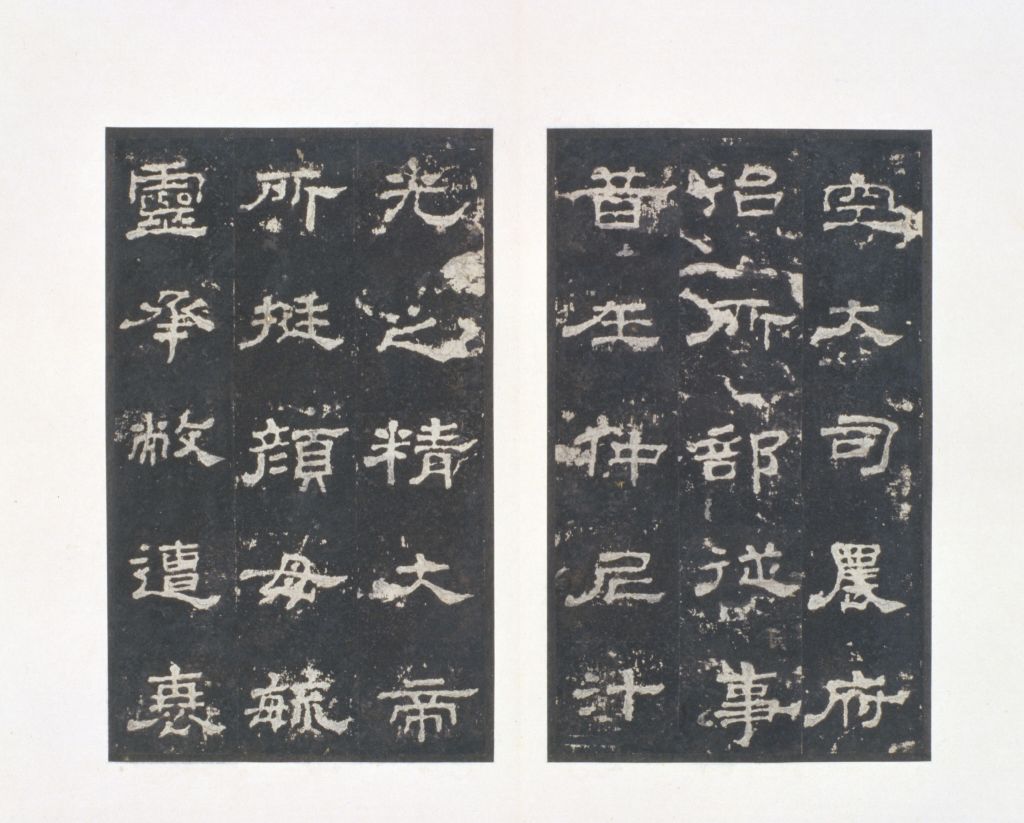 空大司農府
治所部從事
昔在仲尼汁
光之精大帝
所挺顏母毓
靈承敝遭衰